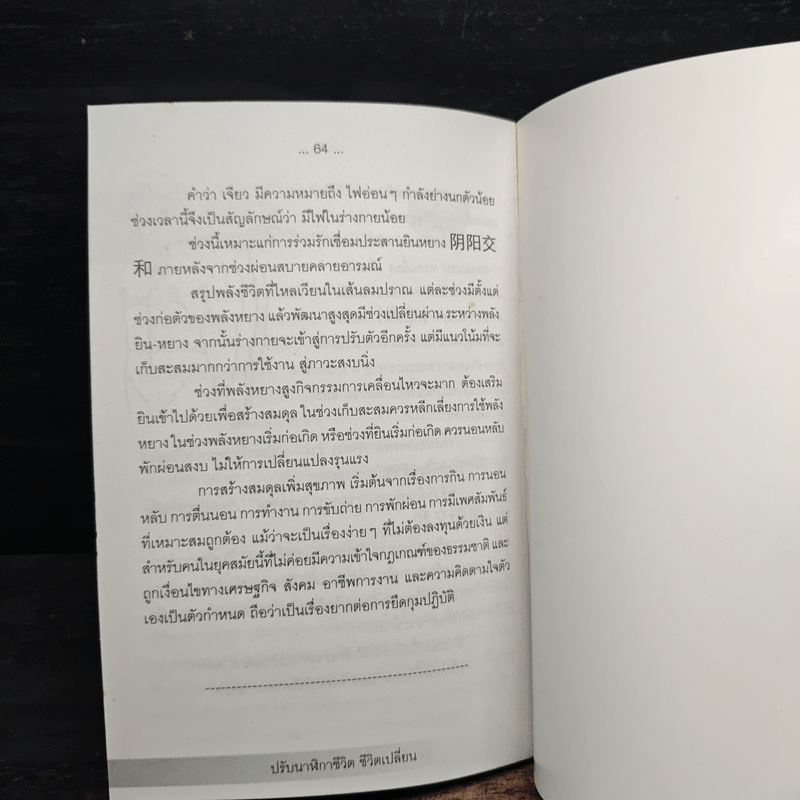 ... 64 ...
คำว่า เจียว มีความหมายถึง ไฟอ่อนๆ กำลังย่างนกตัวน้อย
ช่วงเวลานี้จึงเป็นสัญลักษณ์ว่า มีไฟในร่างกายน้อย
ช่วงนี้เหมาะแก่การร่วมรักเชื่อมประสานยินหยาง 阴阳交
和 ภายหลังจากช่วงผ่อนสบายคลายอารมณ์
สรุปพลังชีวิตที่ไหลเวียนในเส้นลมปราณ แต่ละช่วงมีตั้งแต่
ช่วงก่อตัวของพลังหยาง แล้วพัฒนาสูงสุดมีช่วงเปลี่ยนผ่าน ระหว่างพลัง
ยิน-หยาง จากนั้นร่างกายจะเข้าสู่การปรับตัวอีกครั้ง แต่มีแนวโน้มที่จะ
เก็บสะสมมากกว่าการใช้งาน สู่ภาวะสงบนิ่ง
ช่วงที่พลังหยางสูงกิจกรรมการเคลื่อนไหวจะมาก ต้องเสริม
ยินเข้าไปด้วยเพื่อสร้างสมดุล ในช่วงเก็บสะสมควรหลีกเลี่ยงการใช้พลัง
หยาง ในช่วงพลังหยางเริ่มก่อเกิด หรือช่วงที่ยินเริ่มก่อเกิด ควรนอนหลับ
พักผ่อนสงบ ไม่ให้การเปลี่ยนแปลงรุนแรง
การสร้างสมดุลเพิ่มสุขภาพ เริ่มต้นจากเรื่องการกิน การนอน
หลับ การตื่นนอน การทำงาน การขับถ่าย การพักผ่อน การมีเพศสัมพันธ์
ที่เหมาะสมถูกต้อง แม้ว่าจะเป็นเรื่องง่ายๆ ที่ไม่ต้องลงทุนด้วยเงิน แต่
สำหรับคนในยุคสมัยนี้ที่ไม่ค่อยมีความเข้าใจกฎเกณฑ์ของธรรมชาติ และ
ถูกเงื่อนไขทางเศรษฐกิจ สังคม อาชีพการงาน และความคิดตามใจตัว
เองเป็นตัวกำหนด ถือว่าเป็นเรื่องยากต่อการยึดกุมปฏิบัติ
ปรับนาฬิกาชีวิต ชีวิตเปลี่ยน